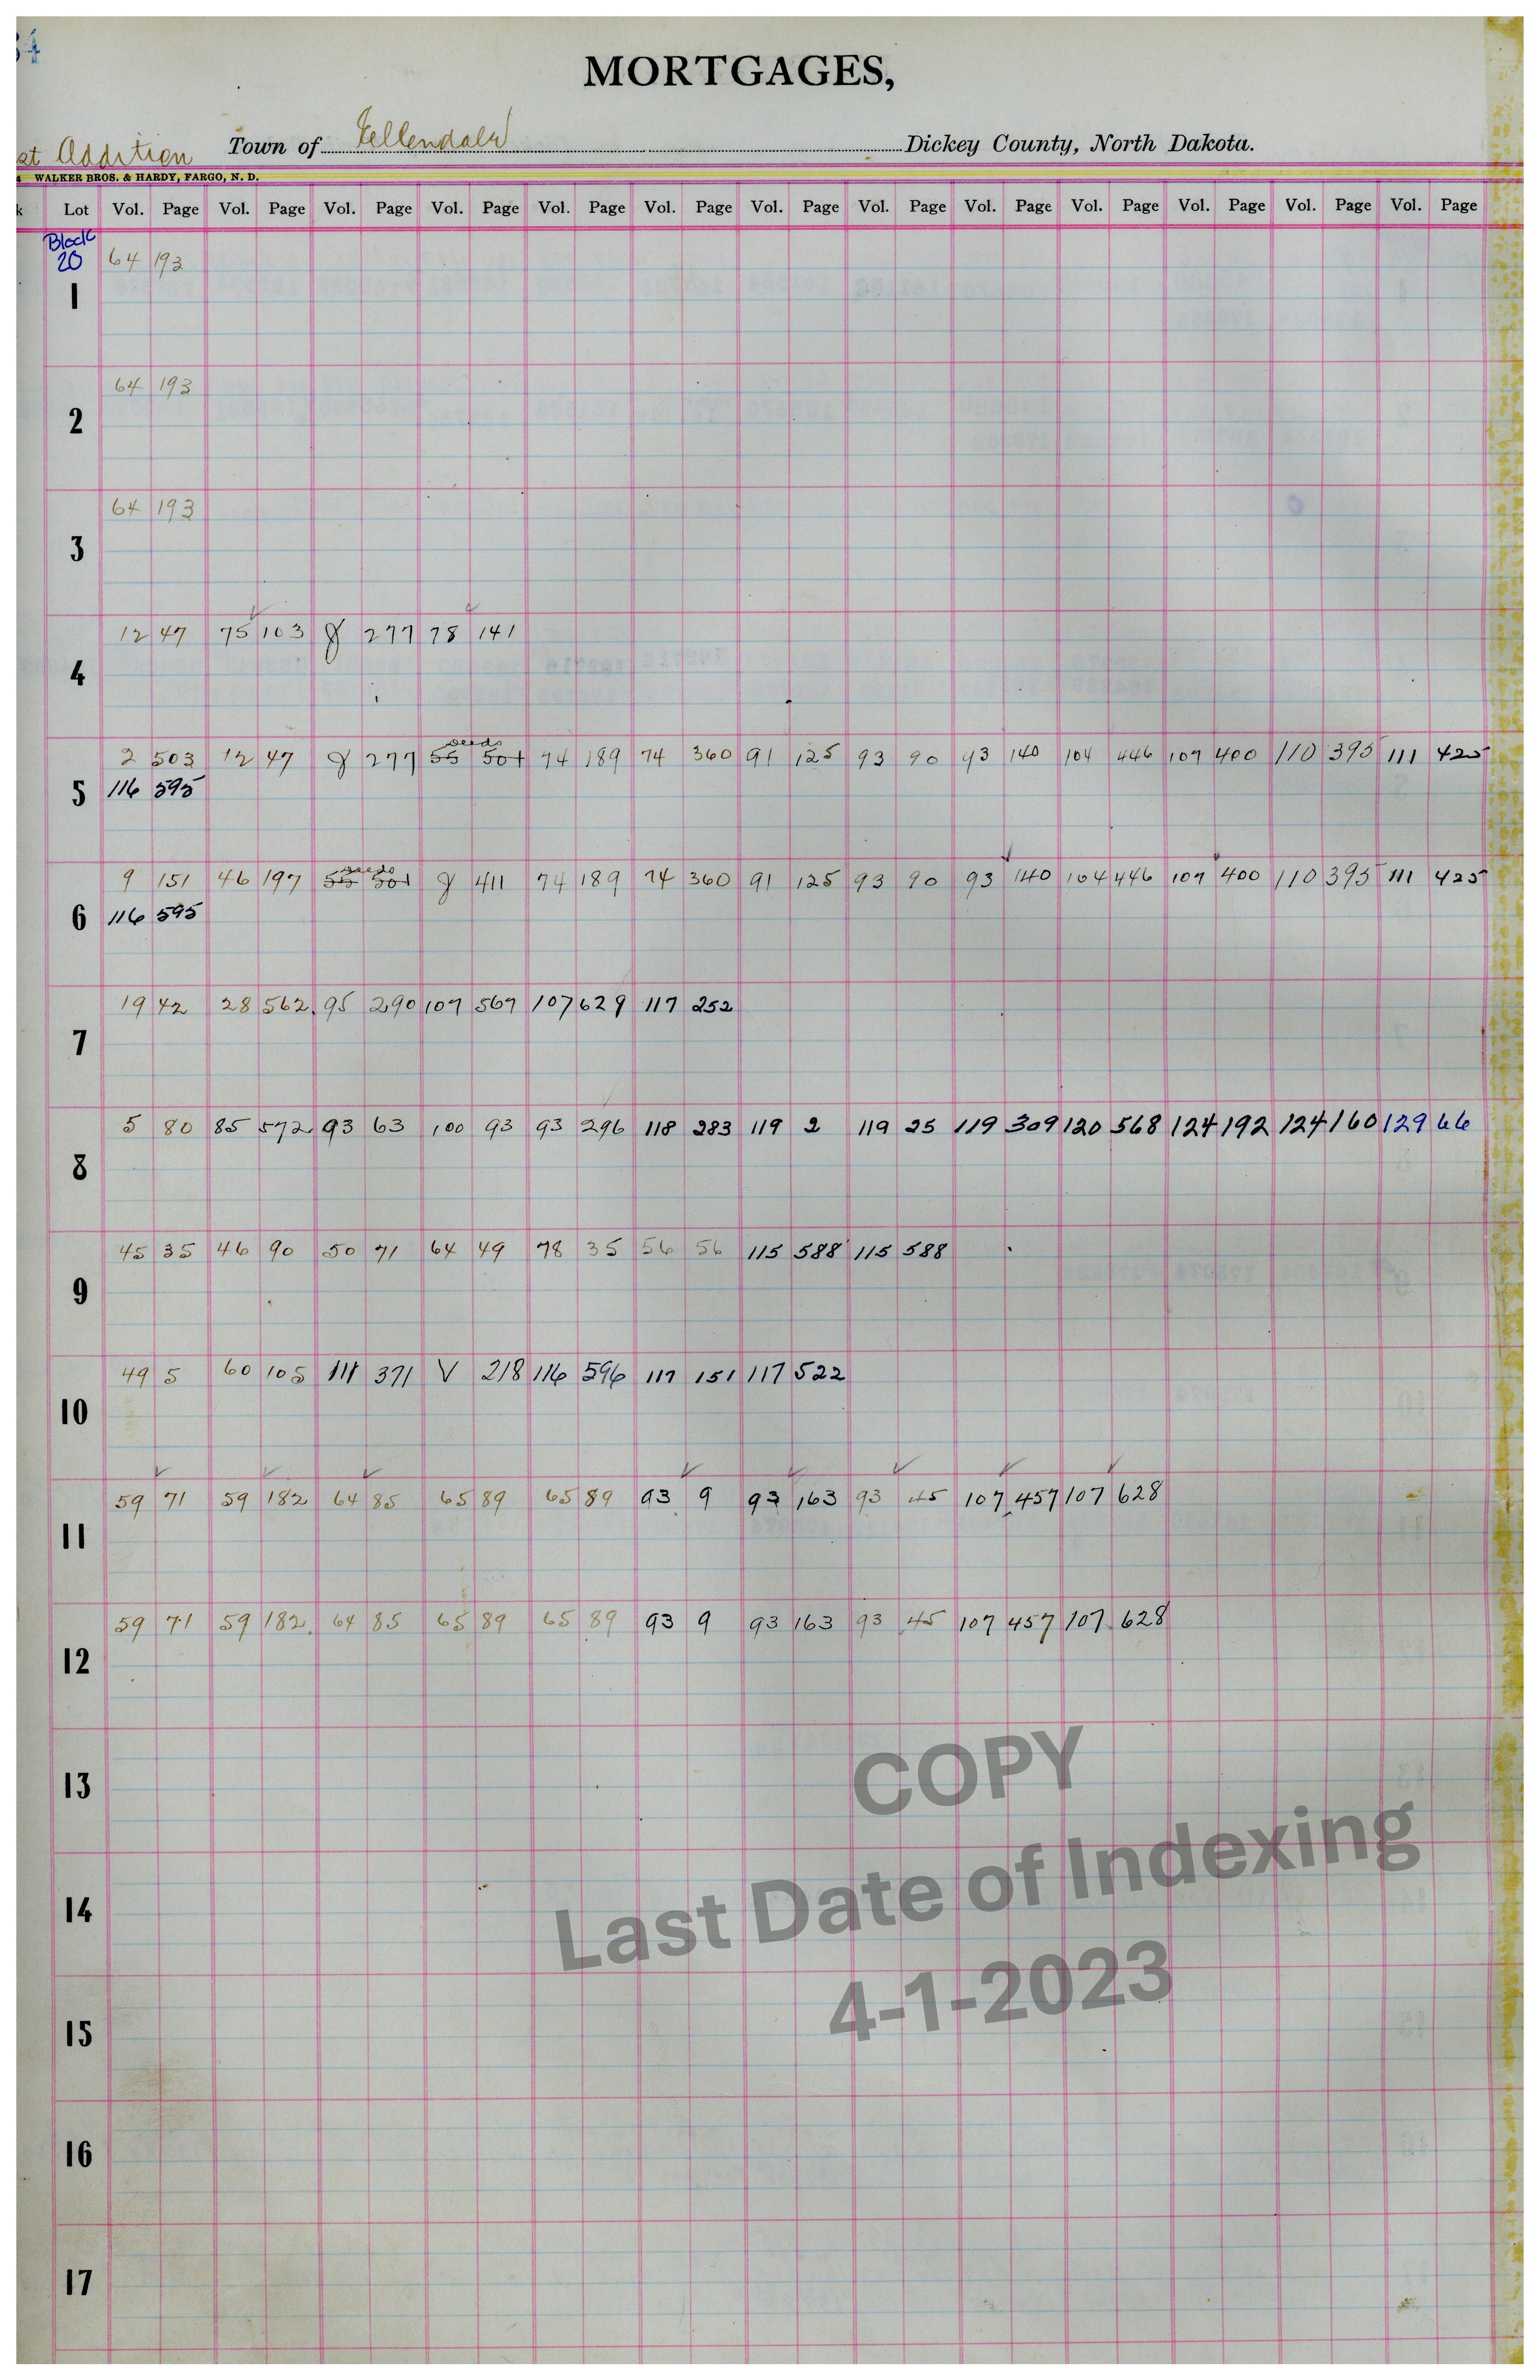 34
MORTGAGES,
st Addition Town of Ellendale Dickey County, North Dakota.
WALKER BROS. & HARDY, FARGO, N. D.
k Lot Vol. Page Vol. Page Vol. Page Vol. Page Vol. Page Vol. Page Vol. Page Vol. Page Vol. Page Vol. Page Vol. Page Vol. Page Vol. Page
Block
20 64 193
1
64 193
2
64 193
3
12 47 75 103 277 78 141
4
deeds
2 503 12 47 277 55 501 74 189 74 360 91 125 93 90 93 140 104 446 107 400 110 395 111 425
5 116 595
deeds
9 151 46 197 55 501 411 74 189 74 360 91 125 93 90 93 140 104 446 107 400 110 395 111 425
6 116 595
19 42 28 562 95 290 107 567 107 629 117 252
7
5 80 85 572 93 63 100 93 93 296 118 283 119 2 119 25 119 309 120 568 124 192 124 160 129 66
8
45 35 46 90 50 71 64 49 78 35 56 56 115 588 115 588
9
49 5 60 105 111 371 V 218 116 596 117 151 117 522
10
59 71 59 182 64 85 65 89 65 89 93 9 93 163 93 45 107 457 107 628
11
59 71 59 182 64 85 65 89 65 89 93 9 93 163 93 45 107 457 107 628
12
13
14
15
16
17
COPY
Last Date of Indexing
4-1-2023